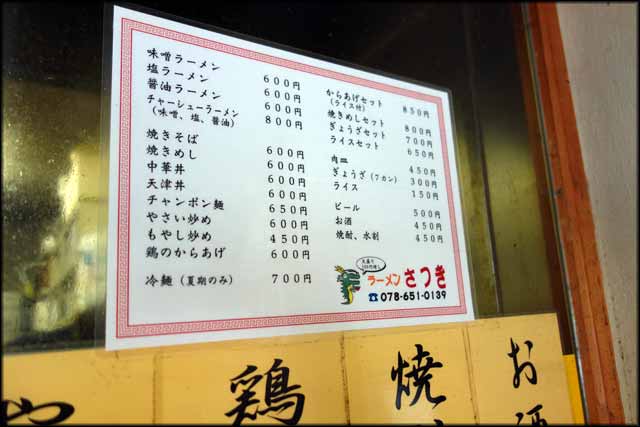 味噌ラーメン 600円
塩ラーメン 600円
醤油ラーメン 600円
チャーシューラーメン 800円
(味噌、塩、醤油)
焼きそば 600円
焼きめし 600円
中華丼 600円
天津丼 600円
チャンポン麺 650円
やさい炒め 600円
もやし炒め 450円
鶏のからあげ 600円
冷麺(夏期のみ) 700円
からあげセット 850円
(ライス付)
焼きめしセット 800円
ぎょうざセット 700円
ライスセット 650円
肉皿 450円
ぎょうざ(7カン) 300円
ライス 150円
ビール 500円
お酒 450円
焼酎、水割 450円
ラーメン さつき
☎078-651-0139
や
鶏
焼
お酒